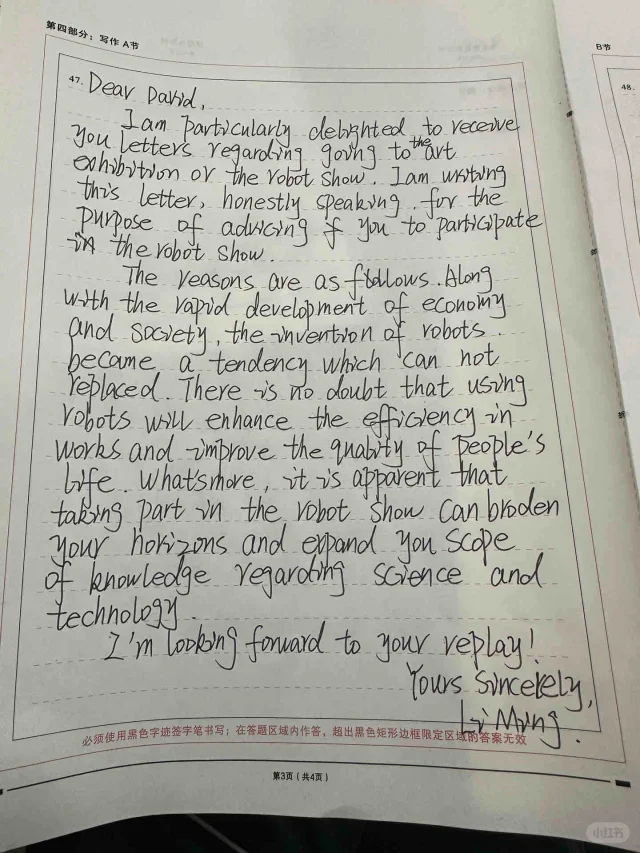 第四部分：写作 A节
B节
47. Dear David,
48.
I am particularly delighted to receive
you letters regarding going to the art
exhibition or the robot show. I am writing
this letter, honestly speaking, for the
purpose of advicing if you to participate
in the robot show.
The reasons are as follows. Along
with the rapid development of economy
and society, the invention of robots
became a tendency which can not
replaced. There is no doubt that using
robots will enhance the efficiency in
works and improve the quality of people's
life. What's more, it is apparent that
taking part in the robot show can broden
your horizons and expand you scope
of knowledge regarding science and
technology.
I'm looking forward to your replay!
Yours Sincerely,
Li Ming.
必须使用黑色字迹签字笔书写；在答题区域内作答，超出黑色矩形边框限定区域的答案无效
第3页（共4页）
小红书